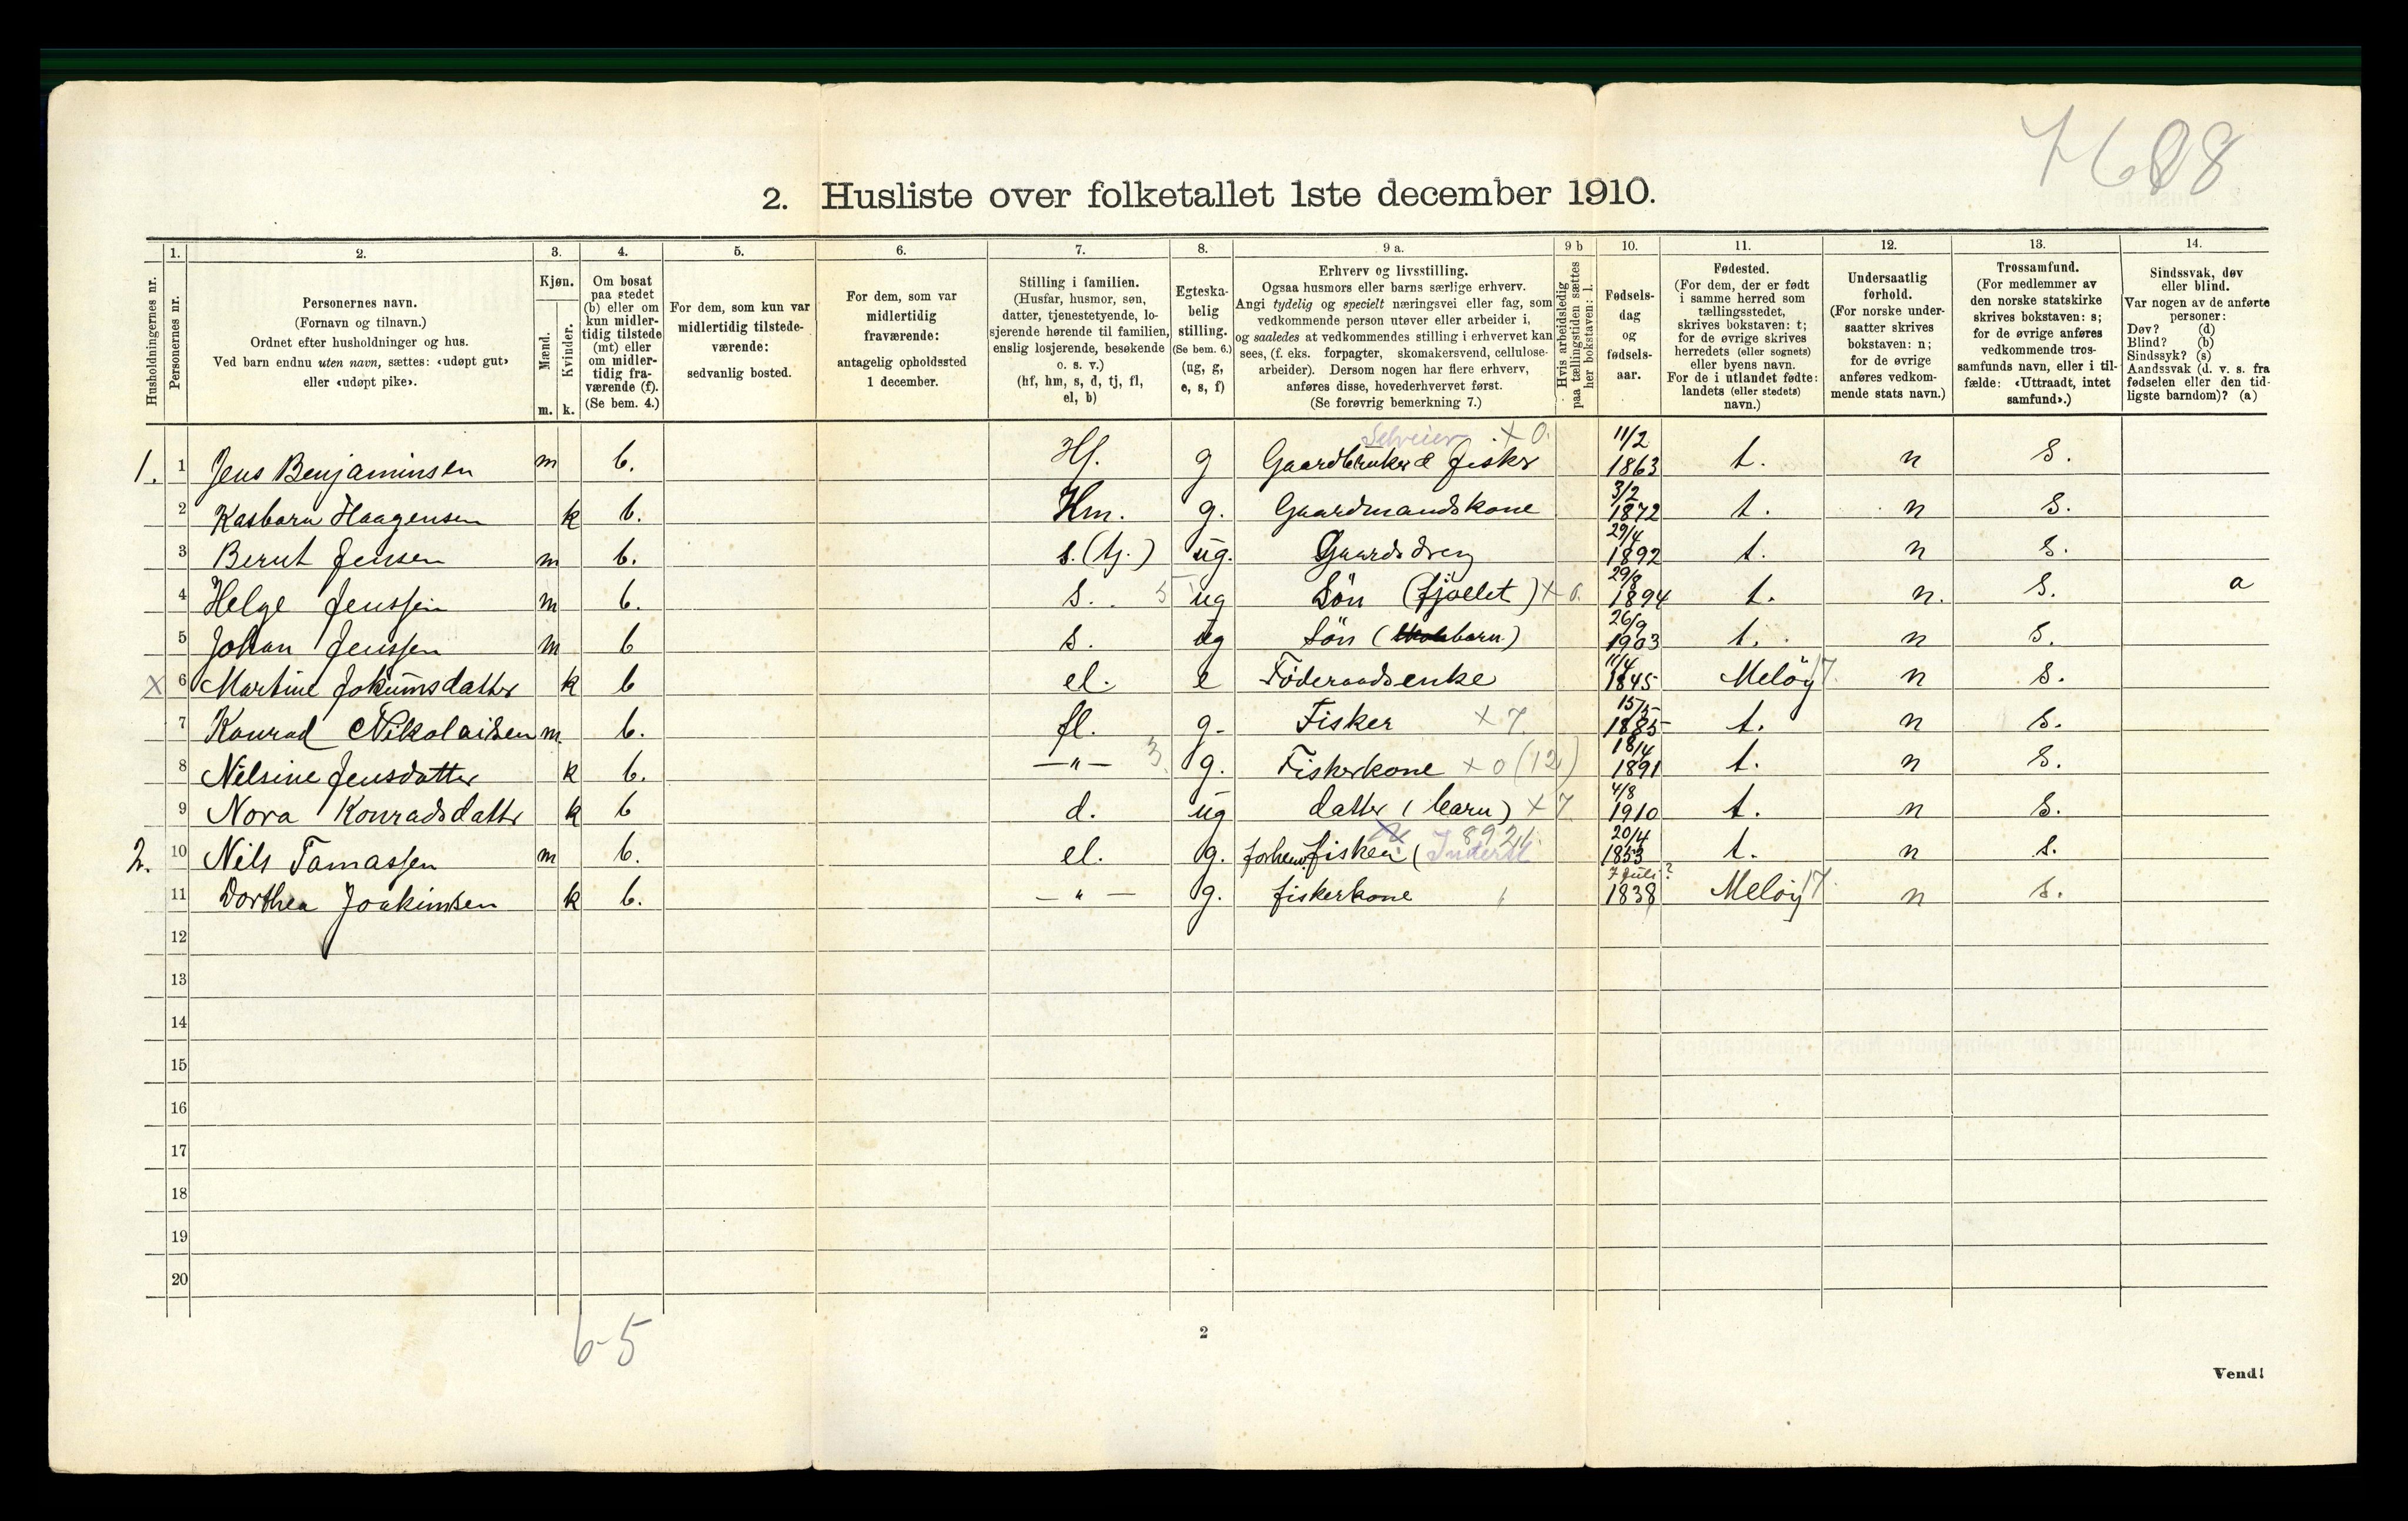 7688
2. Husliste over folketallet 1ste december 1910.
1. 2. 3. 4. 5. 6. 7. 8. 9 a. 9 b 10. 11. 12. 13. 14.
Husholdningernes nr.
Personernes nr.
Personernes navn.
(Fornavn og tilnavn.)
Ordnet efter husholdninger og hus.
Ved barn endnu uten navn, sættes: «udøpt gut»
eller «udøpt pike».
Kjøn.
Mænd.
Kvinder.
m. k.
Om bosat
paa stedet
(b) eller om
kun midler-
tidig tilstede
(mt) eller
om midler-
tidig fra-
værende (f).
(Se bem. 4.)
For dem, som kun var
midlertidig tilstede-
værende:
sedvanlig bosted.
For dem, som var
midlertidig
fraværende:
antagelig opholdssted
1 december.
Stilling i familien.
(Husfar, husmor, søn,
datter, tjenestetyende, lo-
sjerende hørende til familien,
enslig losjerende, besøkende
o. s. v.)
(hf, hm, s, d, tj, fl,
el, b)
Egteska-
belig
stilling.
(Se bem. 6.)
(ug, g,
e, s, f)
Erhverv og livsstilling.
Ogsaa husmors eller barns særlige erhverv.
Angi tydelig og specielt næringsvei eller fag, som
vedkommende person utøver eller arbeider i,
og saaledes at vedkommendes stilling i erhvervet kan
sees, (f. eks. forpagter, skomakersvend, cellulose-
arbeider). Dersom nogen har flere erhverv,
anføres disse, hovederhvervet først.
(Se forøvrig bemerkning 7.)
Hvis arbeidsledig
paa tællingstiden sættes
her bokstaven: l.
Fødsels-
dag
og
fødsels-
aar.
Fødested.
(For dem, der er født
i samme herred som
tællingsstedet,
skrives bokstaven: t;
for de øvrige skrives
herredets (eller sognets)
eller byens navn.
For de i utlandet fødte:
landets (eller stedets)
navn.)
Undersaatlig
forhold.
(For norske under-
saatter skrives
bokstaven: n;
for de øvrige
anføres vedkom-
mende stats navn.)
Trossamfund.
(For medlemmer av
den norske statskirke
skrives bokstaven: s;
for de øvrige anføres
vedkommende tros-
samfunds navn, eller i til-
fælde: «Uttraadt, intet
samfund».)
Sindssvak, døv
eller blind.
Var nogen av de anførte
personer:
Døv? (d)
Blind? (b)
Sindssyk? (s)
Aandssvak (d. v. s. fra
fødselen eller den tid-
ligste barndom)? (a)
Selveier x 0. 11/2
1. 1 Jens Benjaminsen m b. Hf. g Gaardbruker & fisker 1863 t. n s.
3/2
2 Kasbara Haagensen k b. Hm. g. Gaardmandskone 1872 t. n s.
29/4
3 Bernt Jensen m b. s. (tj.) ug. Gaardsdreng 1892 t. n s.
29/8
4 Helge Jenssen m b. s. 5 ug Søn (fjøllet) x 0. 1894 t. n. s. a
26/9
5 Johan Jenssen m b s. ug Søn (barn) 1903 t. n s.
11/4
x 6 Martine Jokumsdatter k b el. e Føderaadsenke 1845 Meløy 17. n s.
15/5
7 Konrad Nikolaisen m. b. fl. g. Fisker x 7. 1885 t. n s.
18/4
8 Nilsine Jensdatter k b. —"— 3. g. Fiskerkone x 0 (12) 1891 t. n s.
4/8
9 Nora Konradsdatter k b d. ug datter (barn) x 7. 1910 t. n s.
8921 20/4
2. 10 Nils Tomassen m b. el. g. forhenv. fisker (Inderst 1853 t. n s.
7 Juli ?
11 Dorthea Joakimsen k b. —"— g. fiskerkone 1838 Meløy 17. n s.
12
13
14
15
16
17
18
19
20
6-5
2
Vend!